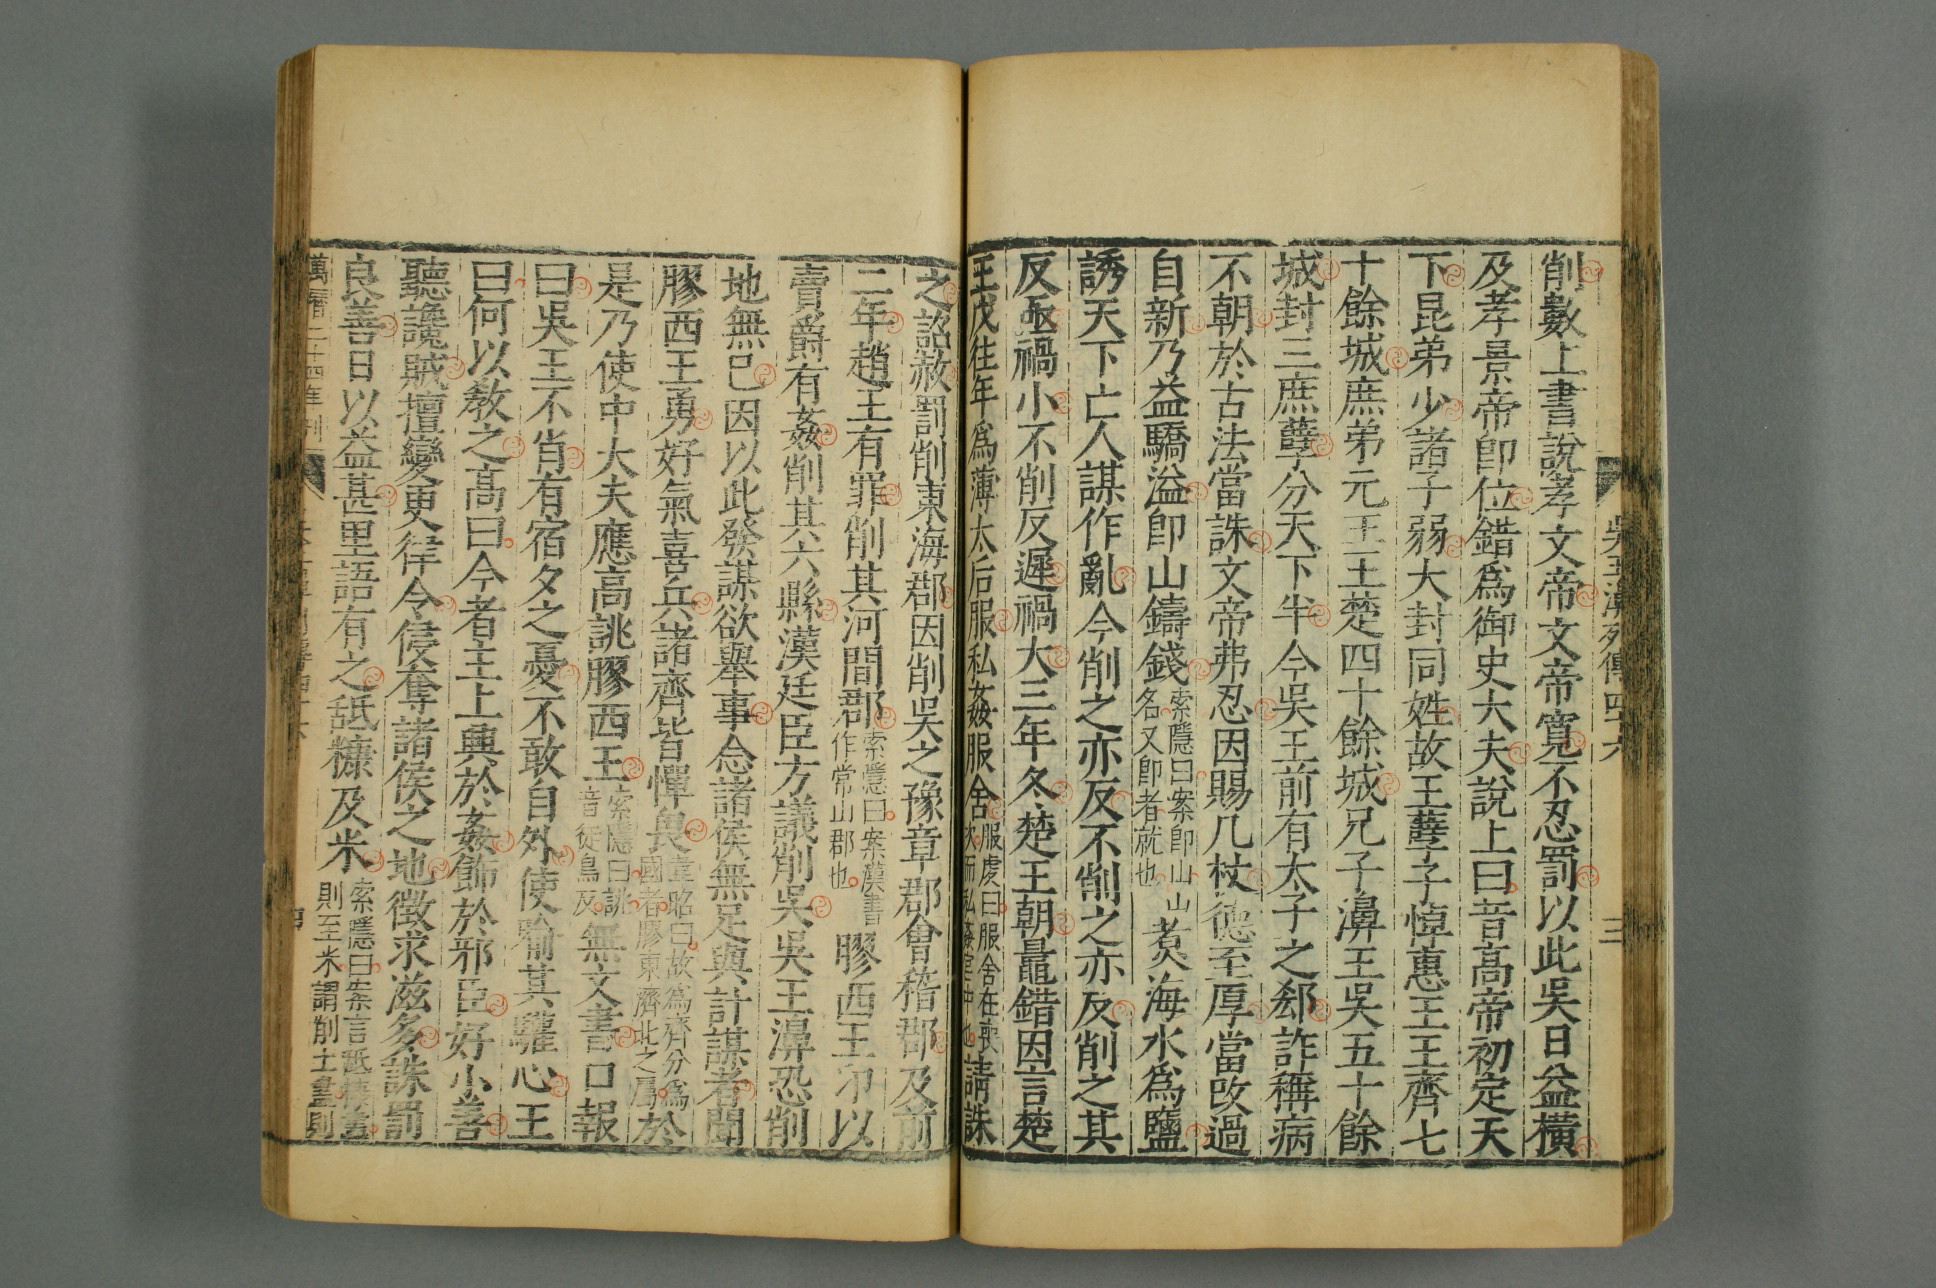 吳王濞列傳四十六
三
削數上書說孝文帝文帝寬不忍罰以此吳日益橫
及孝景帝卽位錯爲御史大夫說上曰昔高帝初定天
下昆弟少諸子弱大封同姓故王孽子悼惠王王齊七
十餘城庶弟元王王楚四十餘城兄子濞王吳五十餘
城封三庶孽分天下半今吳王前有太子之郄詐稱病
不朝於古法當誅文帝弗忍因賜几杖德至厚當改過
自新乃益驕溢卽山鑄錢
索隱曰案卽山山
名又卽者就也
煑海水爲鹽
誘天下亡人謀作亂今削之亦反不削之亦反削之其
反亟禍小不削反遲禍大三年冬楚王朝鼂錯因言楚
王戊往年爲薄太后服私姦服舍
服虔曰服舍在喪
次而私姦宮中也
請誅
之詔赦罰削東海郡因削吳之豫章郡會稽郡及前
二年趙王有罪削其河間郡
索隱曰案漢書
作常山郡也
膠西王卬以
賣爵有姦削其六縣漢廷臣方議削吳吳王濞恐削
地無已因以此發謀欲舉事念諸侯無足與計謀者聞
膠西王勇好氣喜兵諸齊皆憚畏
韋昭曰故爲齊分爲
國者膠東濟北之屬
於
是乃使中大夫應高誂膠西王
索隱曰誂
音徒鳥反
無文書口報
曰吳王不肖有宿夕之憂不敢自外使喻其驩心王
曰何以敎之高曰今者主上興於姦飾於邪臣好小善
聽讒賊擅變更律令侵奪諸侯之地徵求滋多誅罰
良善日以益甚里語有之䑛糠及米
索隱曰案言䑛糠盡
則至米謂削土盡則
萬曆二十四年刊
四